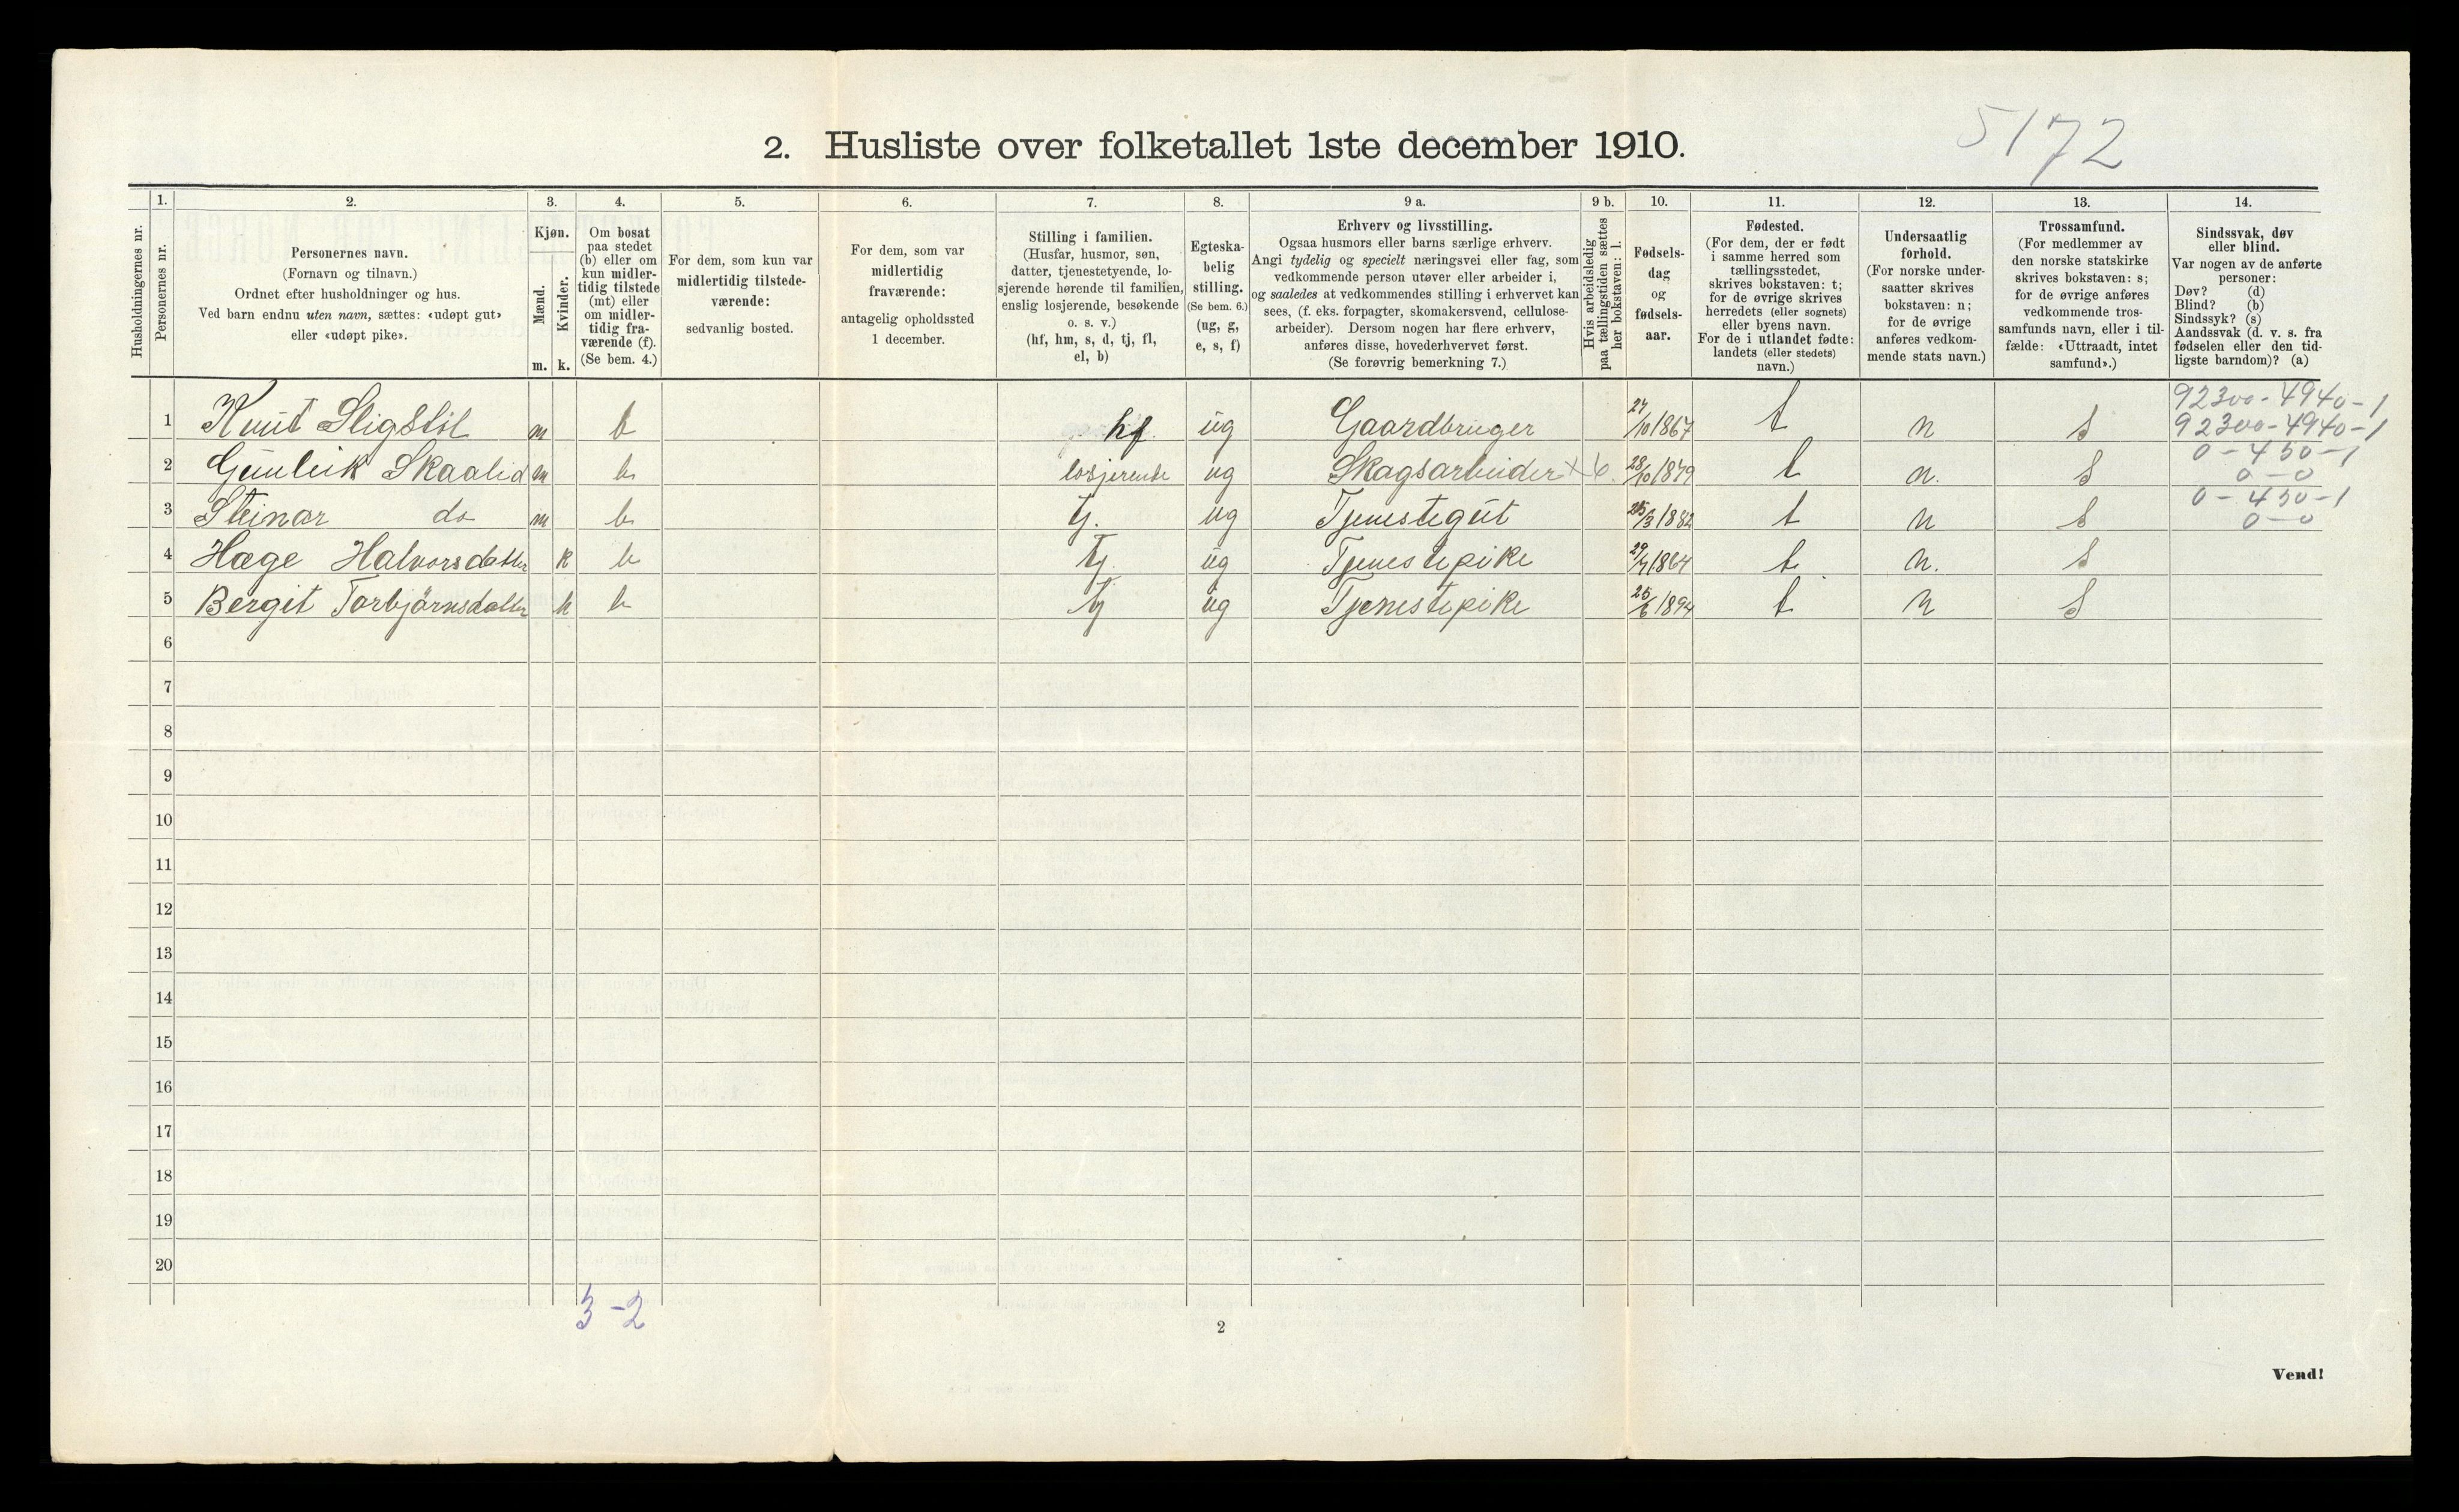 5172
2. Husliste over folketallet 1ste december 1910.
Husholdningernes nr.
1.
Personernes nr.
2.
Personernes navn.
(Fornavn og tilnavn.)
Ordnet efter husholdninger og hus.
Ved barn endnu uten navn, sættes: «udøpt gut»
eller «udøpt pike».
3.
Kjøn.
Mænd.
Kvinder.
m. k.
4.
Om bosat
paa stedet
(b) eller om
kun midler-
tidig tilstede
(mt) eller
om midler-
tidig fra-
værende (f).
(Se bem. 4.)
5.
For dem, som kun var
midlertidig tilstede-
værende:
sedvanlig bosted.
6.
For dem, som var
midlertidig
fraværende:
antagelig opholdssted
1 december.
7.
Stilling i familien.
(Husfar, husmor, søn,
datter, tjenestetyende, lo-
sjerende hørende til familien,
enslig losjerende, besøkende
o. s. v.)
(hf, hm, s, d, tj, fl,
el, b)
8.
Egteska-
belig
stilling.
(Se bem. 6.)
(ug, g,
e, s, f)
9 a.
Erhverv og livsstilling.
Ogsaa husmors eller barns særlige erhverv.
Angi tydelig og specielt næringsvei eller fag, som
vedkommende person utøver eller arbeider i,
og saaledes at vedkommendes stilling i erhvervet kan
sees, (f. eks. forpagter, skomakersvend, cellulose-
arbeider). Dersom nogen har flere erhverv,
anføres disse, hovederhvervet først.
(Se forøvrig bemerkning 7.)
9 b.
Hvis arbeidsledig
paa tællingstiden sættes
her bokstaven: l.
10.
Fødsels-
dag
og
fødsels-
aar.
11.
Fødested.
(For dem, der er født
i samme herred som
tællingsstedet,
skrives bokstaven: t;
for de øvrige skrives
herredets (eller sognets)
eller byens navn.
For de i utlandet fødte:
landets (eller stedets)
navn.)
12.
Undersaatlig
forhold.
(For norske under-
saatter skrives
bokstaven: n;
for de øvrige
anføres vedkom-
mende stats navn.)
13.
Trossamfund.
(For medlemmer av
den norske statskirke
skrives bokstaven: s;
for de øvrige anføres
vedkommende tros-
samfunds navn, eller i til-
fælde: «Uttraadt, intet
samfund».)
14.
Sindssvak, døv
eller blind.
Var nogen av de anførte
personer:
Døv? (d)
Blind? (b)
Sindssyk? (s)
Aandssvak (d. v. s. fra
fødselen eller den tid-
ligste barndom)? (a)
92300-4940-1
1 Knut Sligstøl m b hf ug Gaardbruger 27/10 1867 t n s 92300-4940-1
0-450-1
2 Gunleik Skaalid m b losjerende ug Skogsarbeider × 6. 28/10 1879 t n. s 0-0
0-450-1
3 Steinar do m b tj. ug Tjenestegut 25/3 1882 t n s 0-0
4 Hæge Halvorsdatter k b tj. ug Tjenestepike 29/4 1864 t n. s
5 Bergit Torbjørnsdatter k b tj ug Tjenestepike 25/6 1894 t n s
6
7
8
9
10
11
12
13
14
15
16
17
18
19
20
3-2
2
Vend!